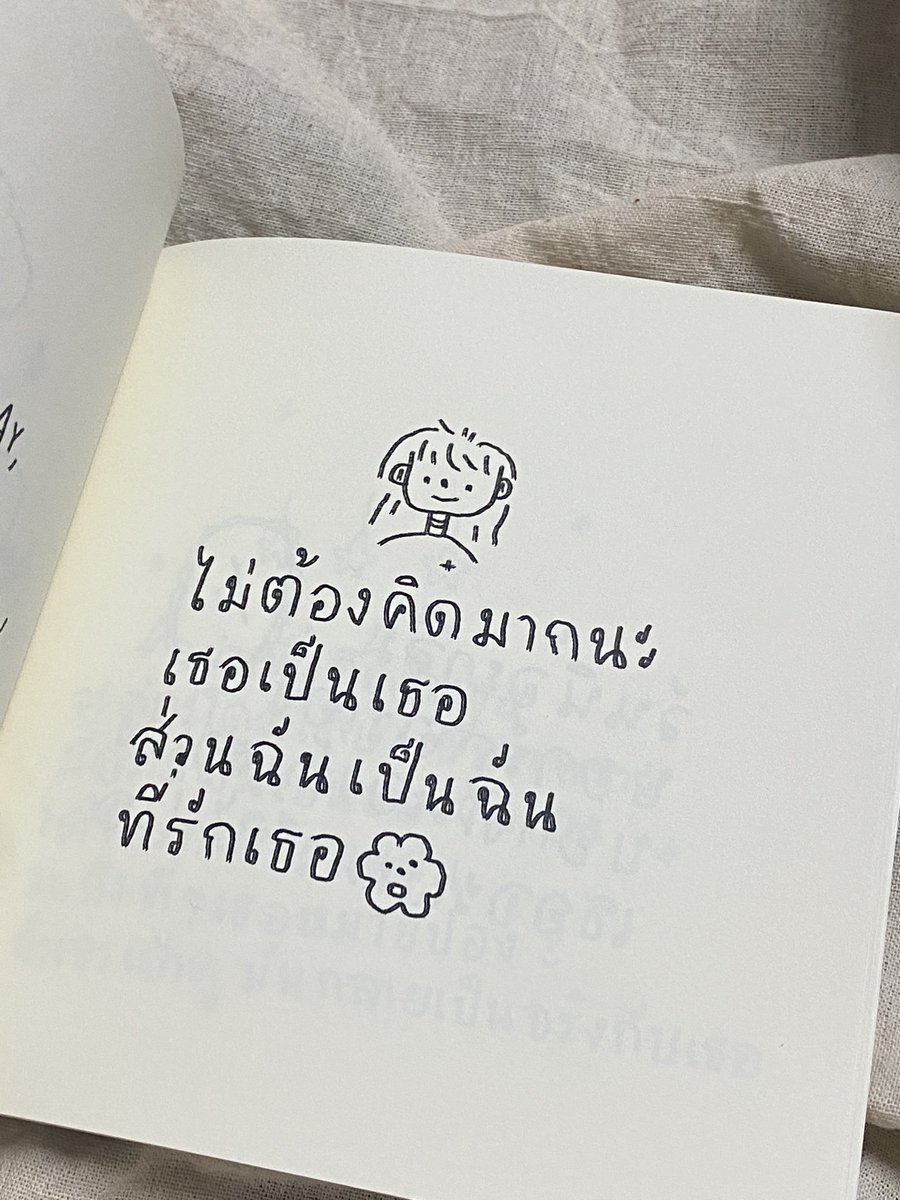 ไม่ต้องคิดมากนะ
เธอเป็นเธอ
ส่วนฉันเป็นฉัน
ที่รักเธอ